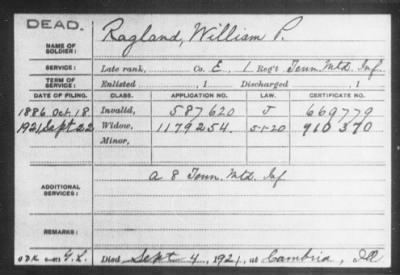 DEAD.
NAME OF SOLDIER: Ragland, William P.
SERVICE: Late rank, Co. E, 1 Reg't Tenn. Mtd. Inf.
TERM OF SERVICE: Enlisted , 1 Discharged , 1
DATE OF FILING. CLASS. APPLICATION NO. LAW. CERTIFICATE NO.
1886 Oct. 18 Invalid, 587620 J 669779
1921 Sept 22 Widow, 1179254. 5-1-20 910370
Minor,
ADDITIONAL SERVICES: A 8 Tenn. Mtd. Inf
REMARKS:
Died Sept 4, 1921, at Cambria, Ill